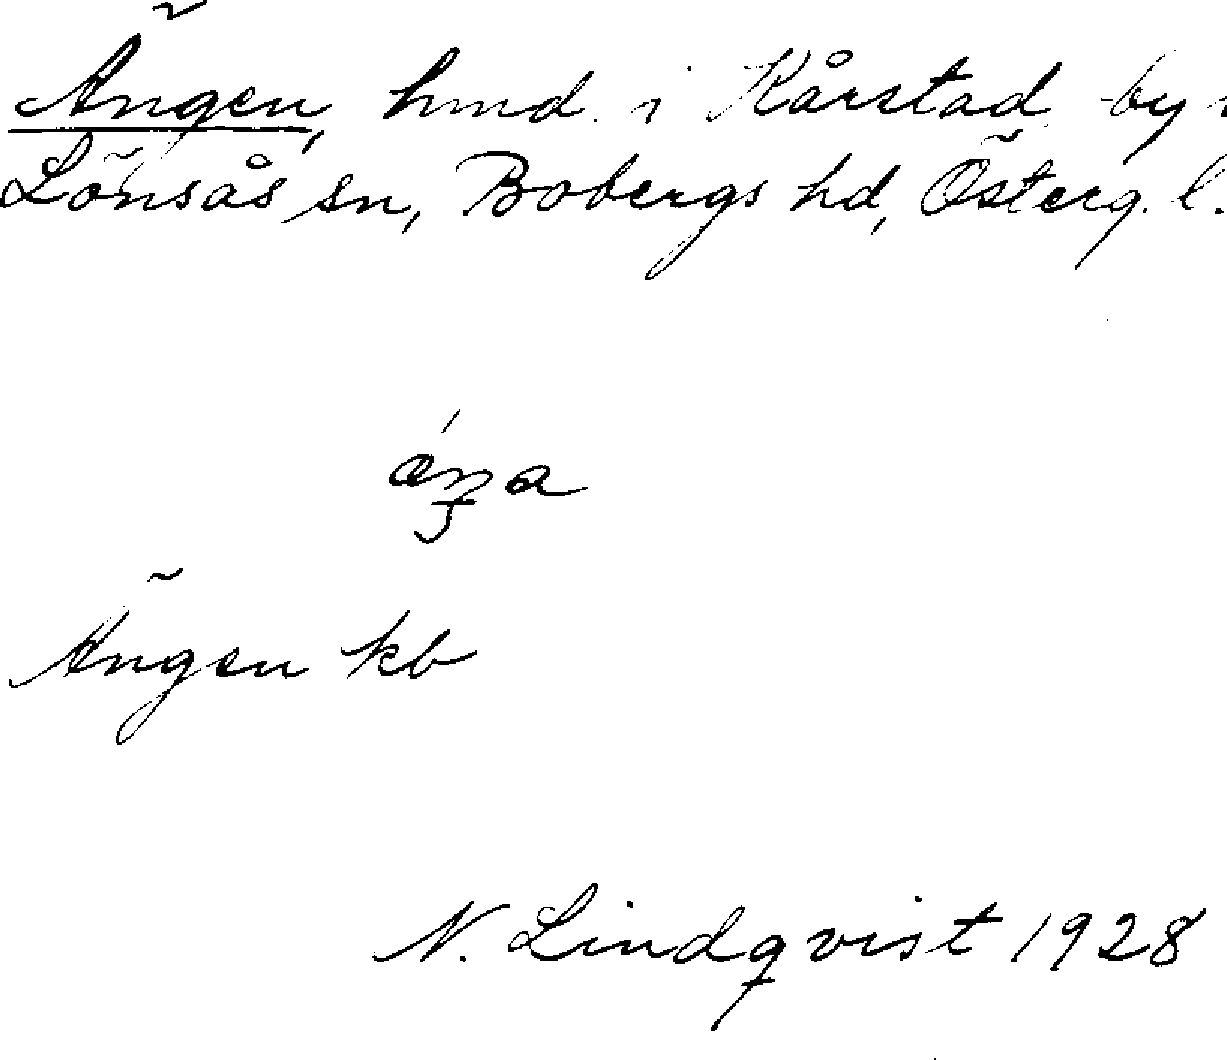 Ängen, hmd. i Kårstad by i
Lönsås sn, Bobergs hd, Österg. l.
Ängen kb
N. Lindqvist 1928